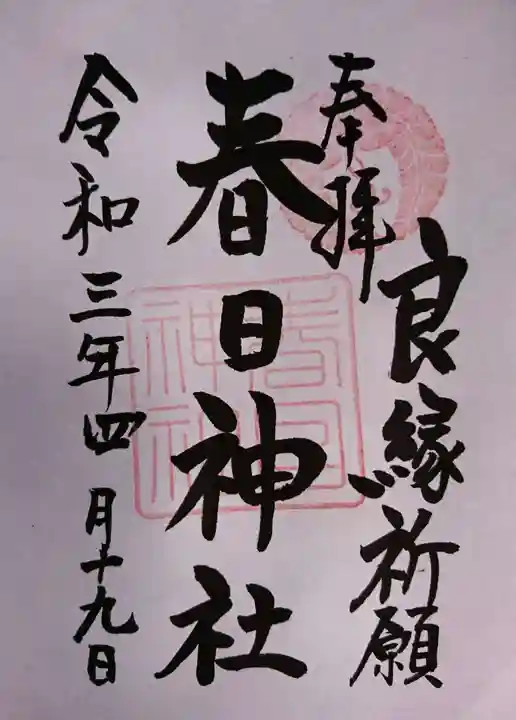 良縁祈願
奉拝
春日神社
令和三年四月十九日
春日
神社